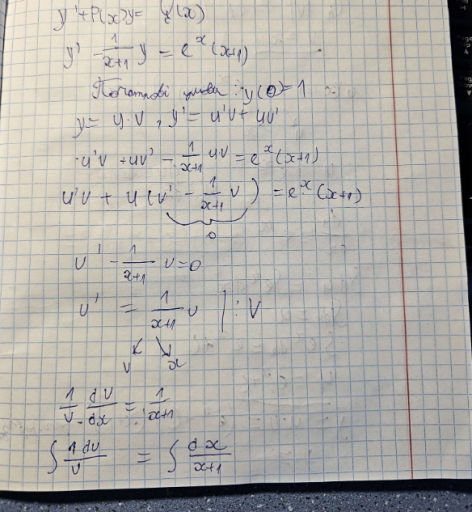 y' + P(x)y = Q(x)
y' - 1/(x+1) y = e^x (x+1)
Початкові умови : y(0) = 1
y = u·v , y' = u'v + uv'
u'v + uv' - 1/(x+1) uv = e^x (x+1)
u'v + u(v' - 1/(x+1) v) = e^x (x+1)
0
v' - 1/(x+1) v = 0
v' = 1/(x+1) v | : v
v x
1/v · dv/dx = 1/(x+1)
∫ 1dv/v = ∫ dx/(x+1)